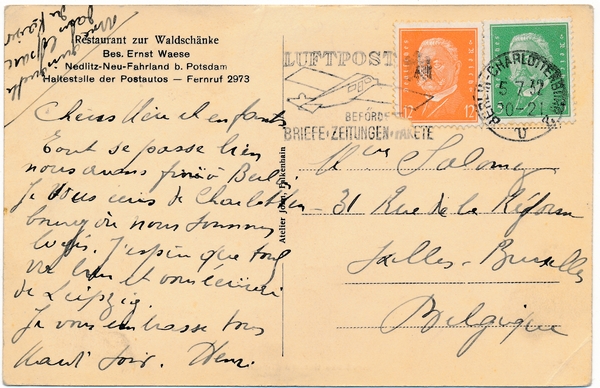 Restaurant zur Waldschänke
Bes. Ernst Waese
Nedlitz-Neu-Fahrland b. Potsdam
Haltestelle der Postautos — Fernruf 2973
LUFTPOST
BEFÖRDE
BRIEFE·ZEITUNGEN·PAKETE
12 12
BERLIN-CHARLOTTENBURG
5.7.32
20-21
Chers Mimi et enfants
Tout se passe bien
nous avons fini à Berlin
Je vous écris de Charlotten
bourg où nous sommes
logés. J'espère que tout
va bien et vous écrirai
de Leipzig.
Je vous embrasse tous
Mardi soir. Henri
Atelier Joop, Falkenhain
Mme Salomez
31 Rue de la Réforme
Ixelles-Bruxelles
Belgique